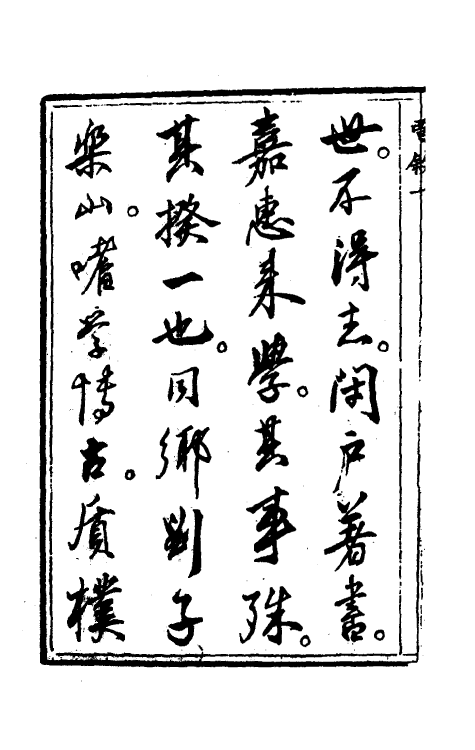 世。不得志。閑户著書。
嘉惠来學。其事殊。
其揆一也。同鄉劉子
樂山。嗜学博古。質樸